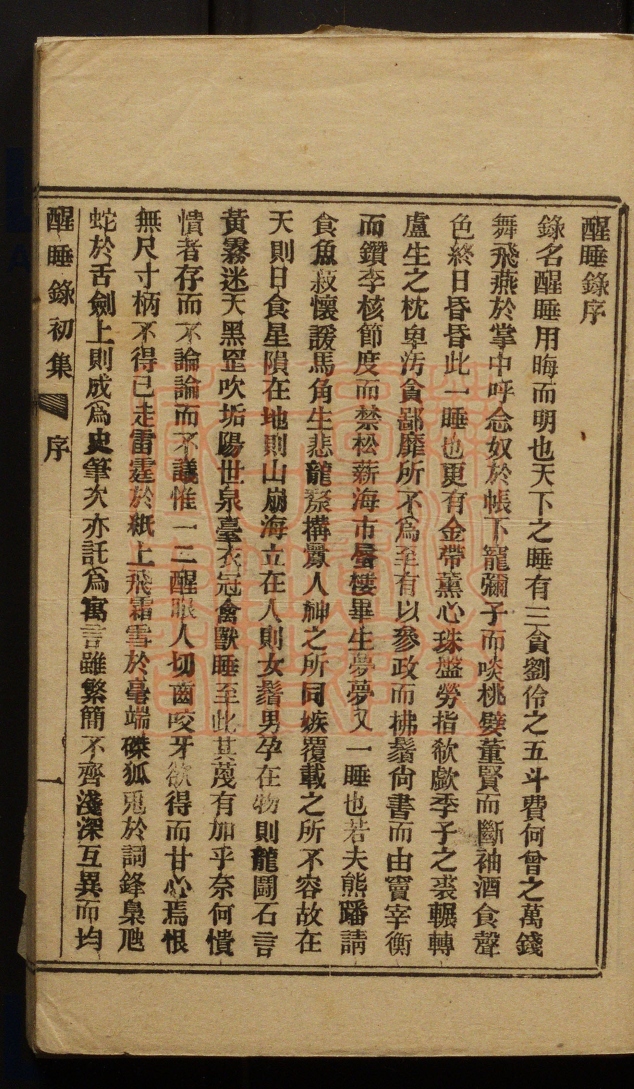 醒睡錄序
錄名醒睡用晦而明也天下之睡有三貪劉伶之五斗費何曾之萬錢
舞飛燕於掌中呼念奴於帳下寵彌子而啖桃嬖董賢而斷袖酒食聲
色終日昏昏此一睡也更有金帶薰心珠盤勞指欷歔季子之裘輾轉
盧生之枕卑汚貪鄙靡所不爲至有以參政而拂鬚尙書而由竇宰衡
而鑽李核節度而禁松薪海市蜃樓畢生夢夢又一睡也若夫熊蹯請
食魚菽懷諼馬角生悲龍漦搆釁人神之所同嫉覆載之所不容故在
天則日食星隕在地則山崩海立在人則女鬚男孕在物則龍鬪石言
黃霧迷天黑罡吹垢陽世泉臺衣冠禽獸睡至此其蔑有加乎奈何憒
憒者存而不論論而不議惟一二醒眼人切齒咬牙欲得而甘心焉恨
無尺寸柄不得已走雷霆於紙上飛霜雪於毫端磔狐鬼於詞鋒梟虺
蛇於舌劍上則成爲史筆次亦託爲寓言雖繁簡不齊淺深互異而均
醒睡錄初集 序 一